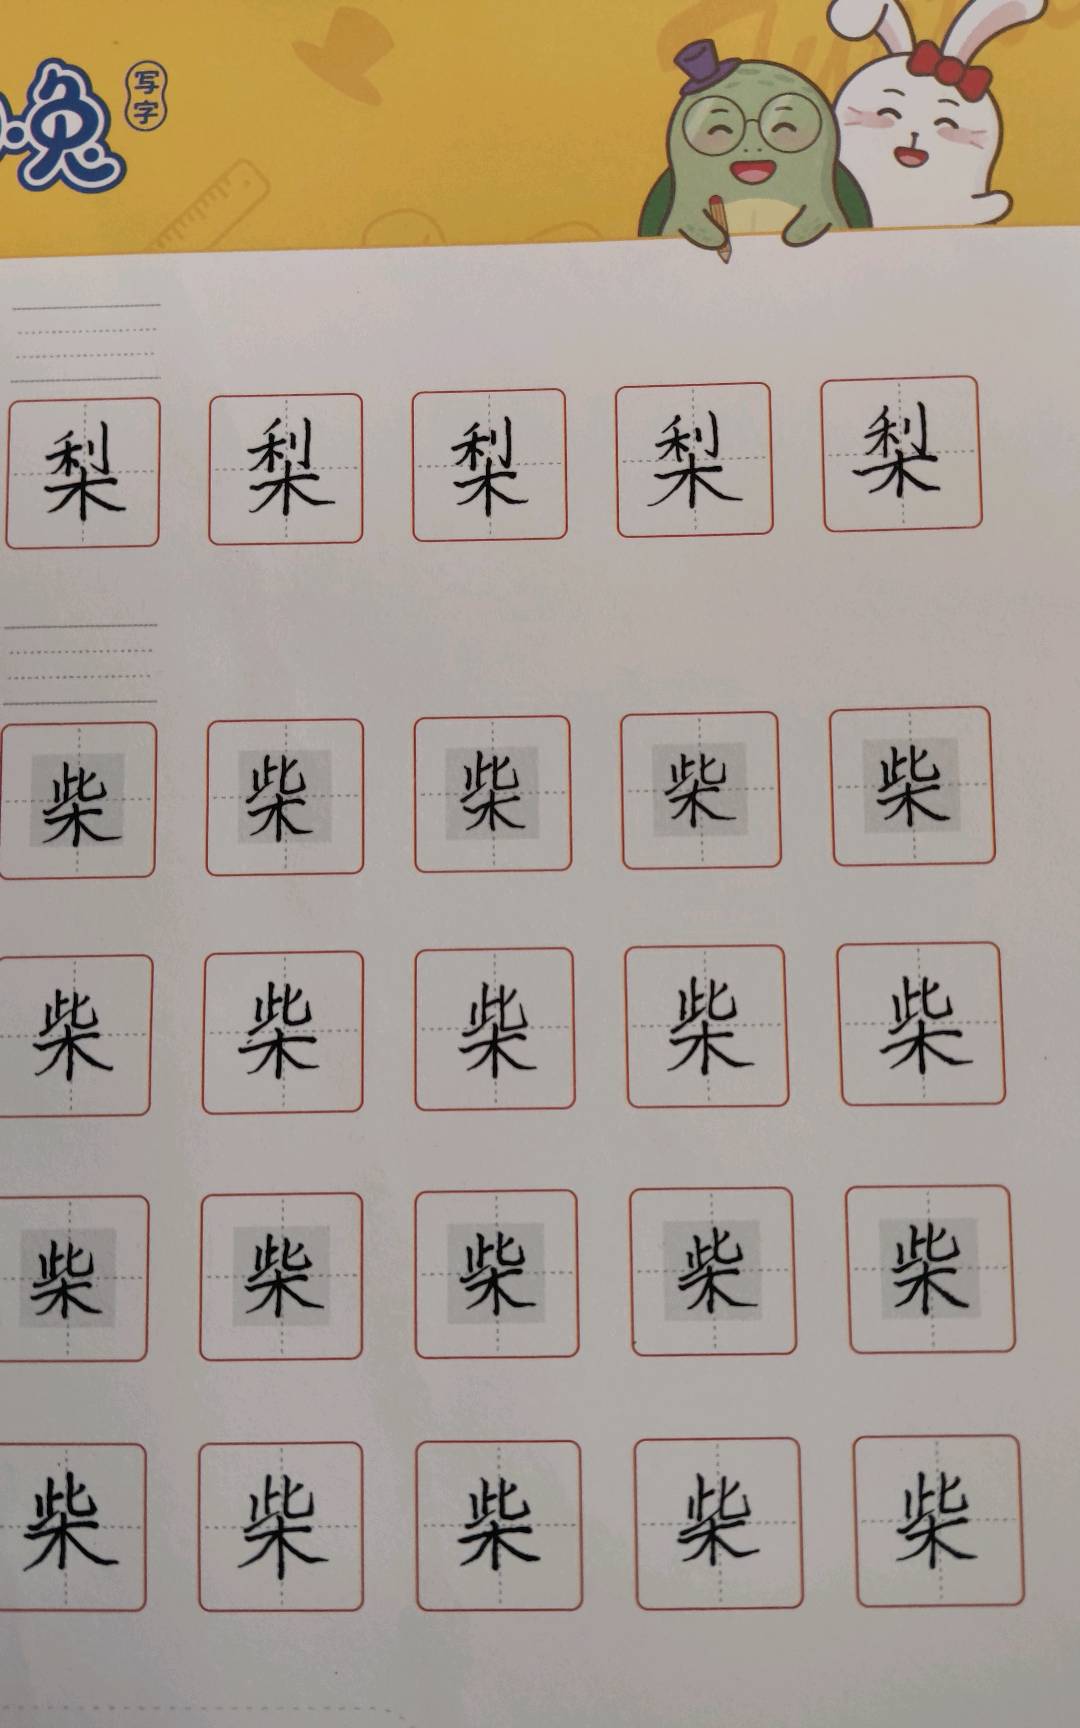 兔 写字
梨 梨 梨 梨 梨
柴 柴 柴 柴 柴
柴 柴 柴 柴 柴
柴 柴 柴 柴 柴
柴 柴 柴 柴 柴